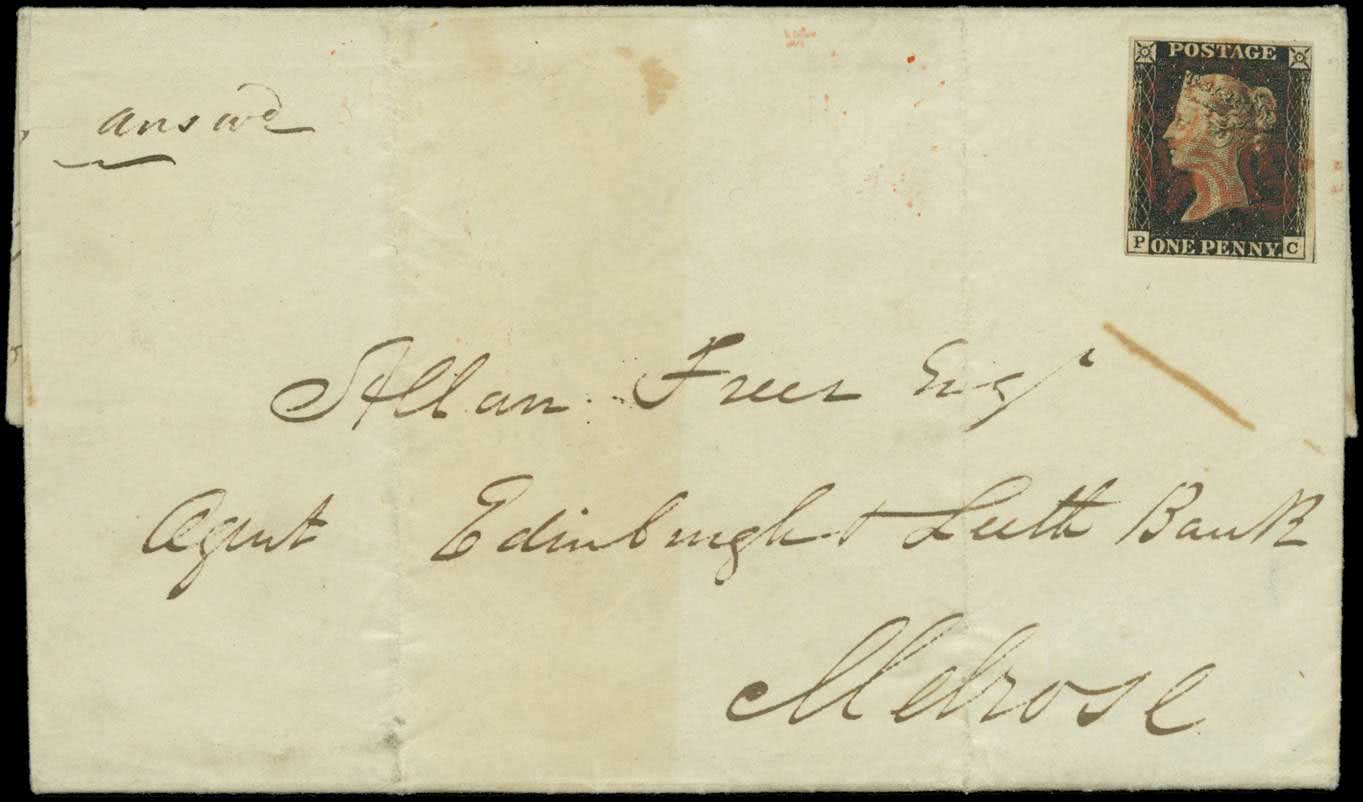 answd
POSTAGE
P ONE PENNY. C
Allan Freer Esqr
Agent Edinburgh & Leith Bank
Melrose